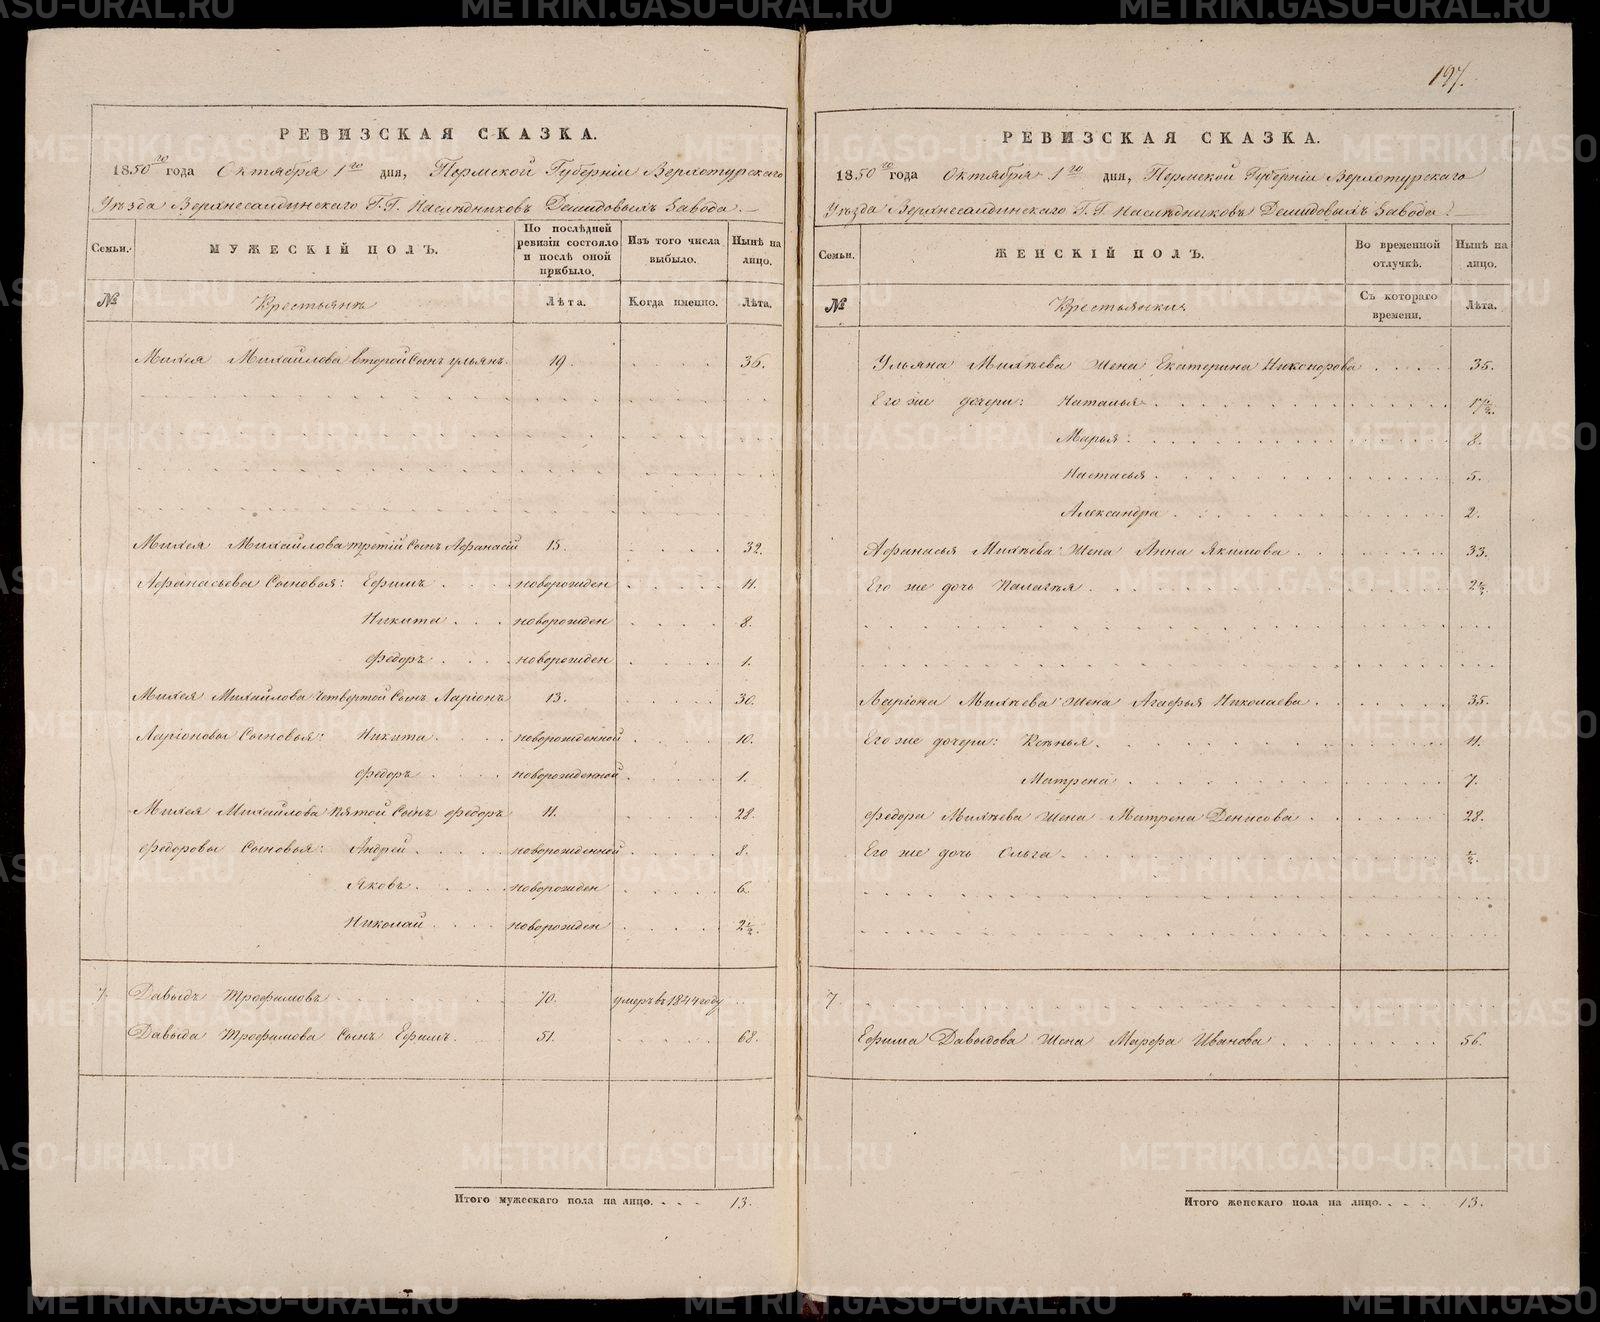 197.
РЕВИЗСКАЯ СКАЗКА.
1850го года Октября 1го дня, Пермской Губерніи Верхотурскаго
Уѣзда Верхнесалдинскаго Г.Г. Наслѣдниковъ Демидовыхъ Завода.
Семьи. МУЖЕСКІЙ ПОЛЪ. По послѣдней ревизіи состояло и послѣ оной прибыло. Изъ того числа выбыло. Нынѣ на лицо.
№ Крестьянъ Лѣта. Когда именно. Лѣта.
Михея Михайлова второй Сынъ Ульянъ. 19. 36.
Михея Михайлова третій Сынъ Афанасій 15. 32.
Афанасьевы Сыновья: Ефимъ новорожден 11.
Никита новорожден 8.
Федоръ новорожден 1.
Михея Михайлова четвертой Сынъ Ларіонъ 13. 30.
Ларіоновы Сыновья: Никита новорожденной 10.
Федоръ новорожденной 1.
Михея Михайлова пятой Сынъ Федоръ 11. 28.
Федоровы Сыновья: Андрей новорожденной 8.
Яковъ новорожден 6.
Николай новорожден 2½.
7 Давыдъ Трофимовъ 70. умеръ въ 1844 году
Давыда Трофимова Сынъ Ефимъ. 51. 68.
Итого мужескаго пола на лицо. 13.
РЕВИЗСКАЯ СКАЗКА.
1850го года Октября 1го дня, Пермской Губерніи Верхотурскаго
Уѣзда Верхнесалдинскаго Г.Г. Наслѣдниковъ Демидовыхъ Завода.
Семьи. ЖЕНСКІЙ ПОЛЪ. Во временной отлучкѣ. Нынѣ на лицо.
№ Крестьянки. Съ котораго времени. Лѣта.
Ульяна Михѣева жена Екатерина Никонорова 35.
Его же дочери: Наталья
Марья 8.
Настасья 5.
Александра 2.
Афанасья Михѣева жена Анна Якимова 33.
Его же дочь Палагѣя 2½.
Ларіона Михѣева жена Агафья Николаева 35.
Его же дочери: Ксѣнья. 11.
Матрена 7.
Федора Михѣева жена Матрена Денисова 28.
Его же дочь Ольга. ½.
7
Ефима Давыдова жена Марфа Иванова 56.
Итого женскаго пола на лицо. 13.
METRIKI.GASO-URAL.RU